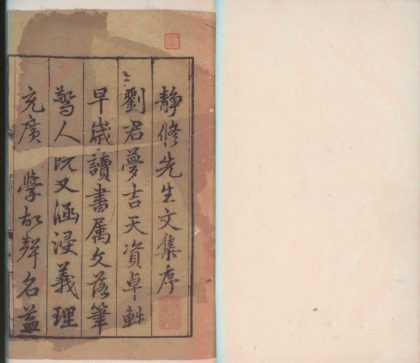 靜修先生文集序
劉君夢吉天資卓軼
早歲讀書属文落筆
驚人既又涵浸義理
充廣學故聲名益